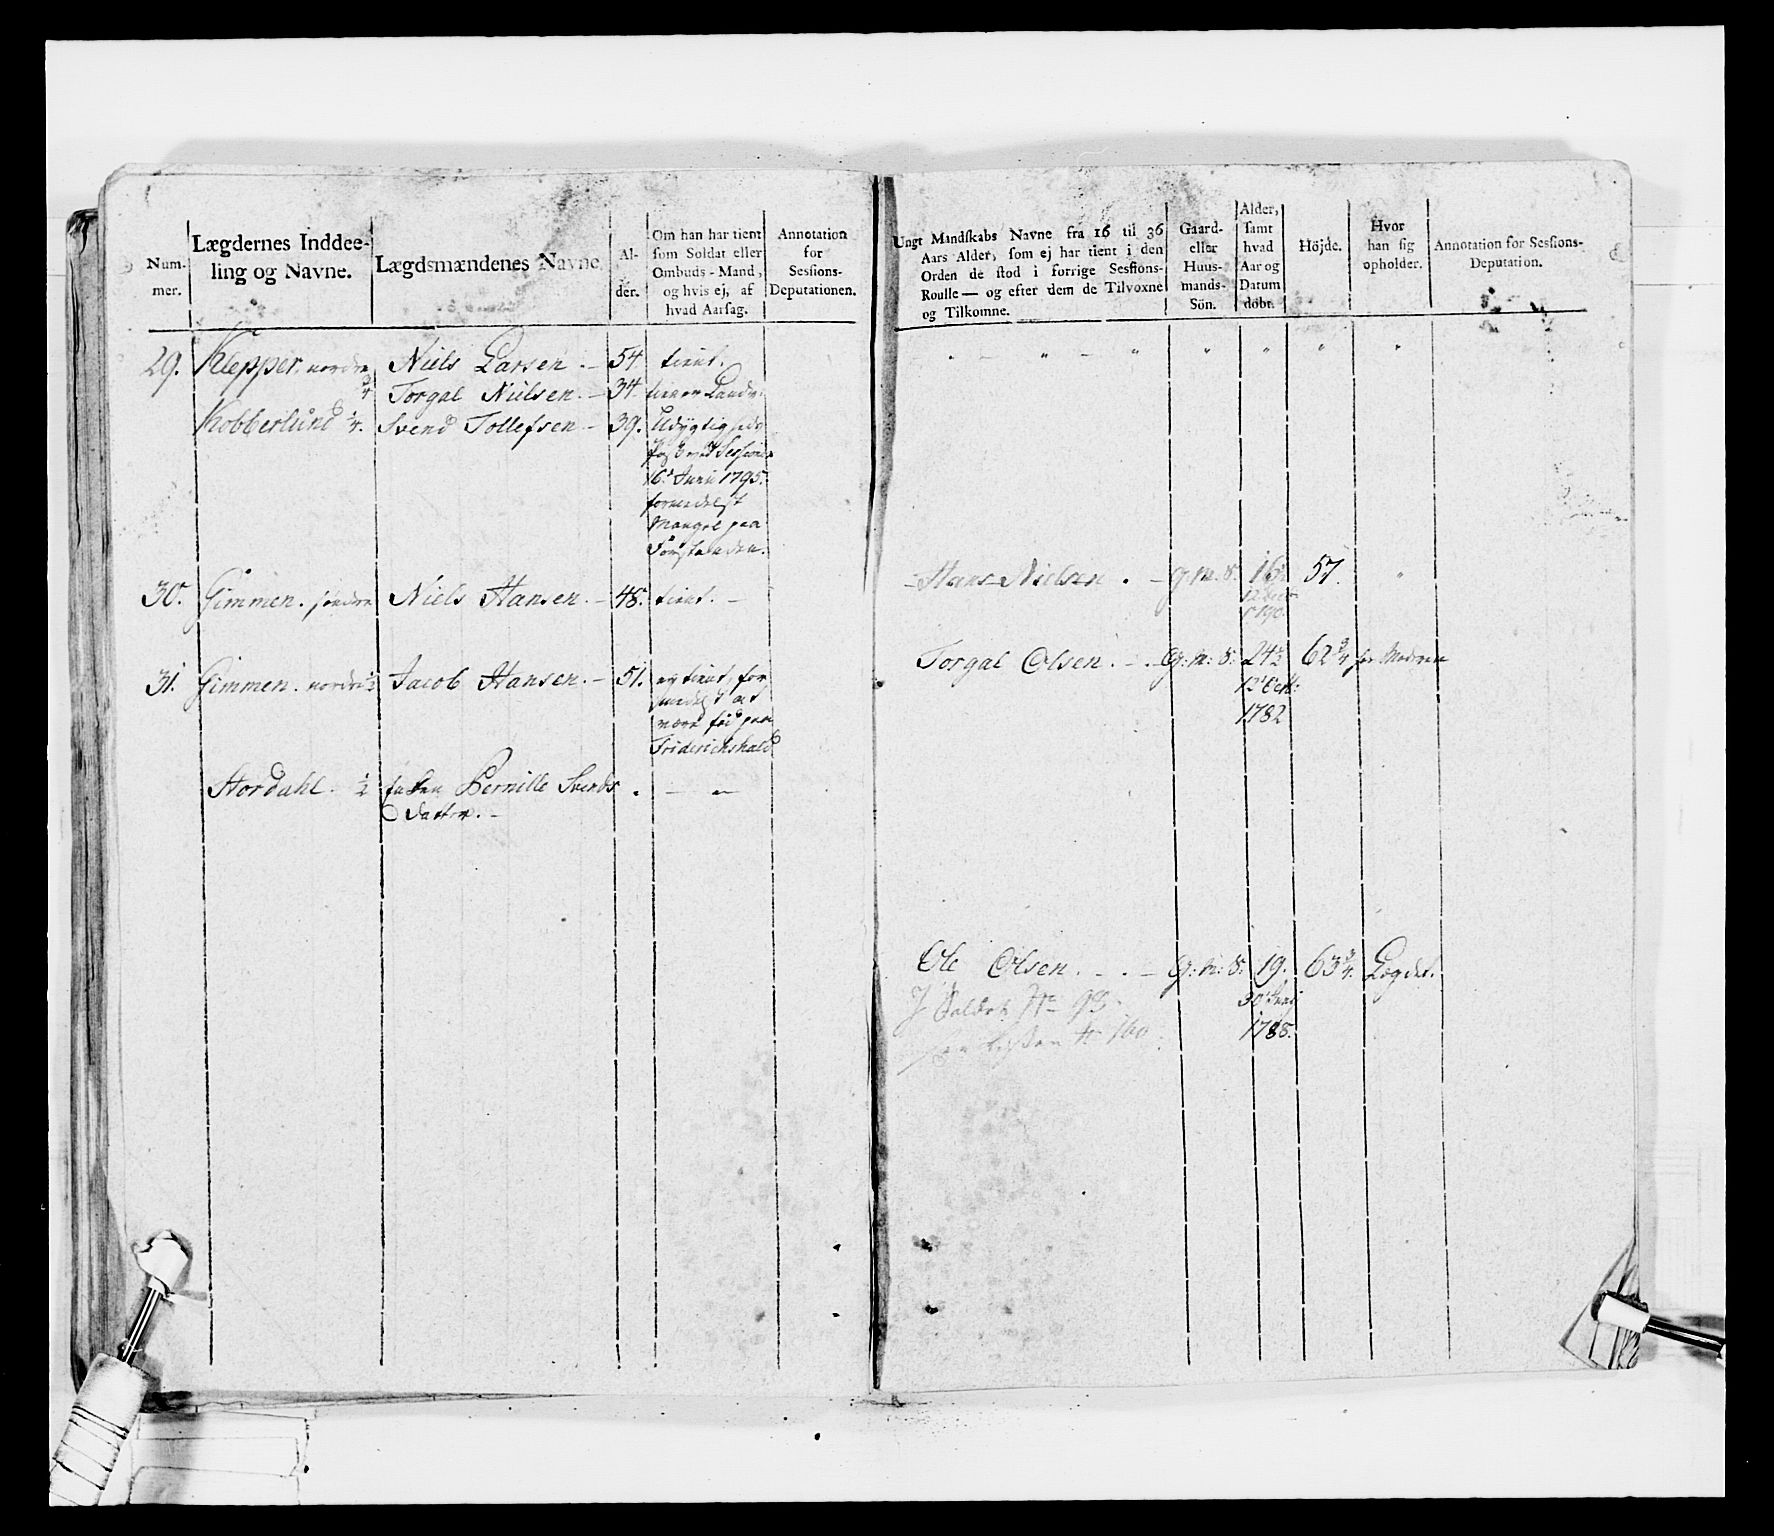 Num-
mer.
Lægdernes Inddee-
ling og Navne.
Lægdsmændenes Navne.
Al-
der.
Om han har tient
som Soldat eller
Ombuds-Mand,
og hvis ej, af
hvad Aarsag.
Annotation
for
Sessions-
Deputationen.
29. Klepper, nordre 3/4 Niels Larsen. — 54 tient.
Torgal Nielsen. — 34. tien er Landv.
Kobberlund 1/4. Svend Tollefsen — 39. Udygtig
ved Session
6. Junii 1795.
formedelst
Mangel paa
Forstanden.
30. Gimmen. søndre Niels Hansen. — 48. tient. —
31. Gimmen. nordre 1/2 Jacob Hansen. — 51. ey tient, for
medelst at
være fød paa
Friderichshald
Stordahl. 1/2 Enken Pernille Svends
Datter. —
Ungt Mandskabs Navne fra 16 til 36
Aars Alder, som ej har tient i den
Orden de stod i forrige Sessions-
Roulle — og efter dem de Tilvoxne
og Tilkomne.
Gaard-
eller
Huus-
mands-
Sön.
Alder,
samt
hvad
Aar og
Datum
döbt.
Höjde.
Hvor
han sig
opholder.
Annotation for Sessions-
Deputation.
Hans Nielsen. — G. M. S. 16 1/2 57. "
12
1790.
Torgal Olsen. — G: M: S: 24 1/2 62 3/4 for Madroes
12 Octb:
1782
Ole Olsen. — . — G: M: S: 19. 63 3/4. Lægdet.
30 Junij
1788.
J No 98
160